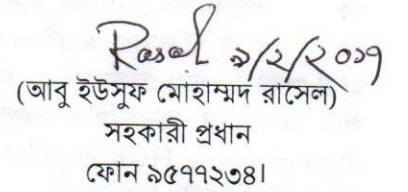 Rasel ৯/২/২০১৭
(আবু ইউসুফ মোহাম্মদ রাসেল)
সহকারী প্রধান
ফোন ৯৫৭৭২৩৪।